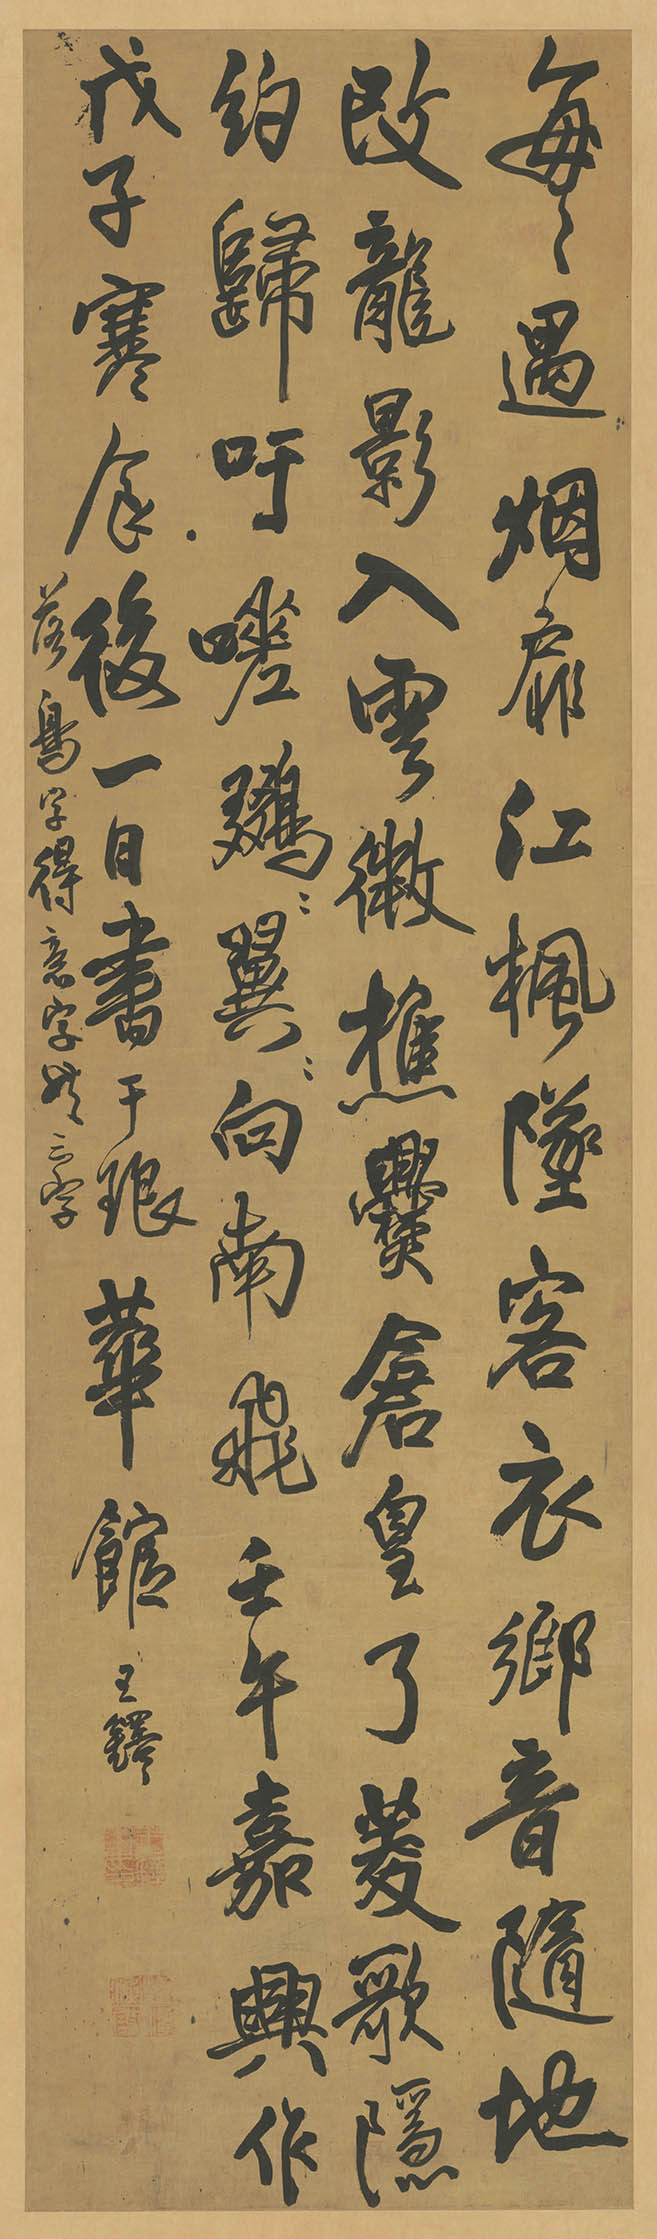 每〻遇烟扉江楓墜客衣鄉音隨地
改龍影入雲微樵爨倉皇了菱歌隱
約歸吁嗟鵽翼向南飛壬午嘉興作
戊子寒食後一日書于琅華館 王鐸
落鳥字得意字共三字